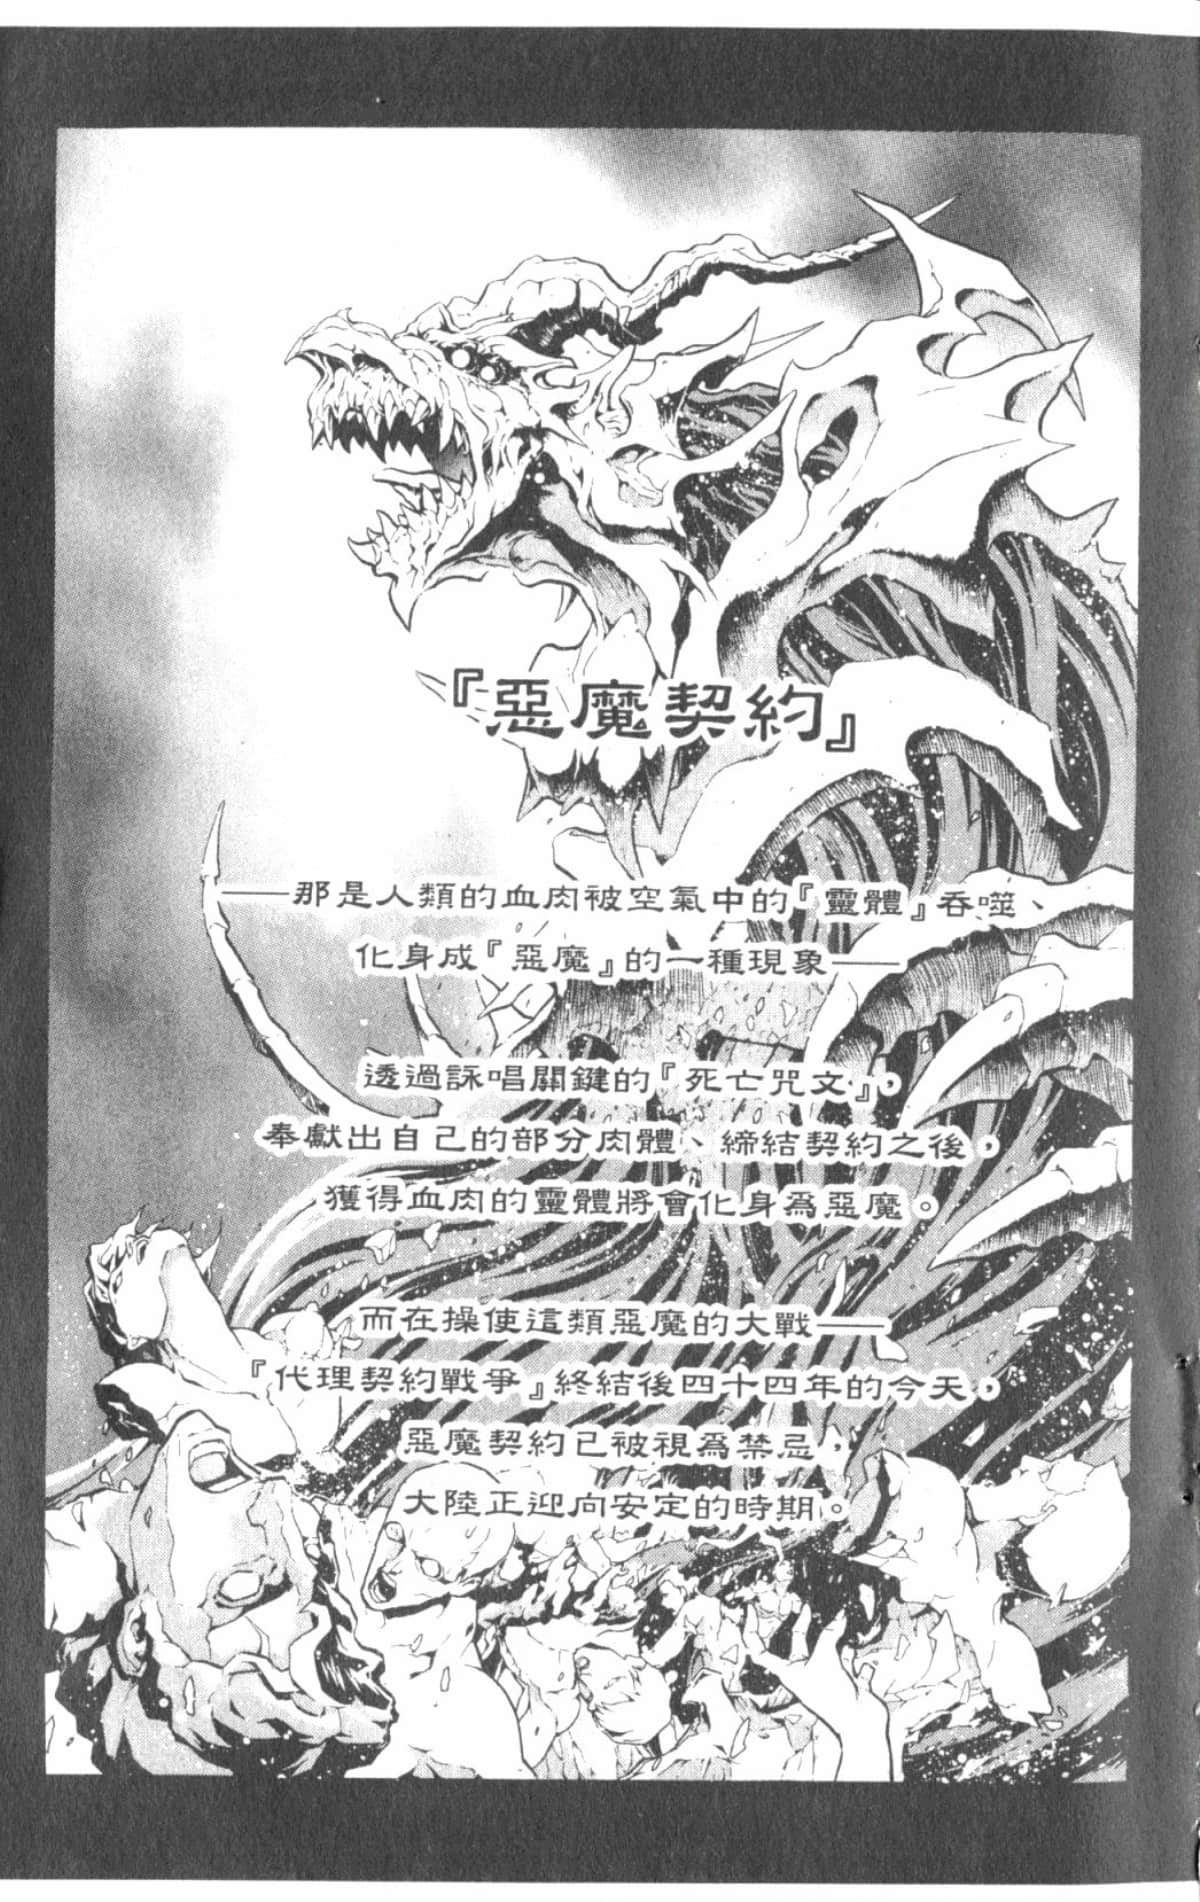 『惡魔契約』
——那是人類的血肉被空氣中的『靈體』吞噬、
化身成『惡魔』的一種現象——
透過詠唱關鍵的『死亡咒文』，
奉獻出自己的部分肉體、締結契約之後，
獲得血肉的靈體將會化身為惡魔。
而在操使這類惡魔的大戰——
『代理契約戰爭』終結後四十四年的今天，
惡魔契約已被視為禁忌，
大陸正迎向安定的時期。